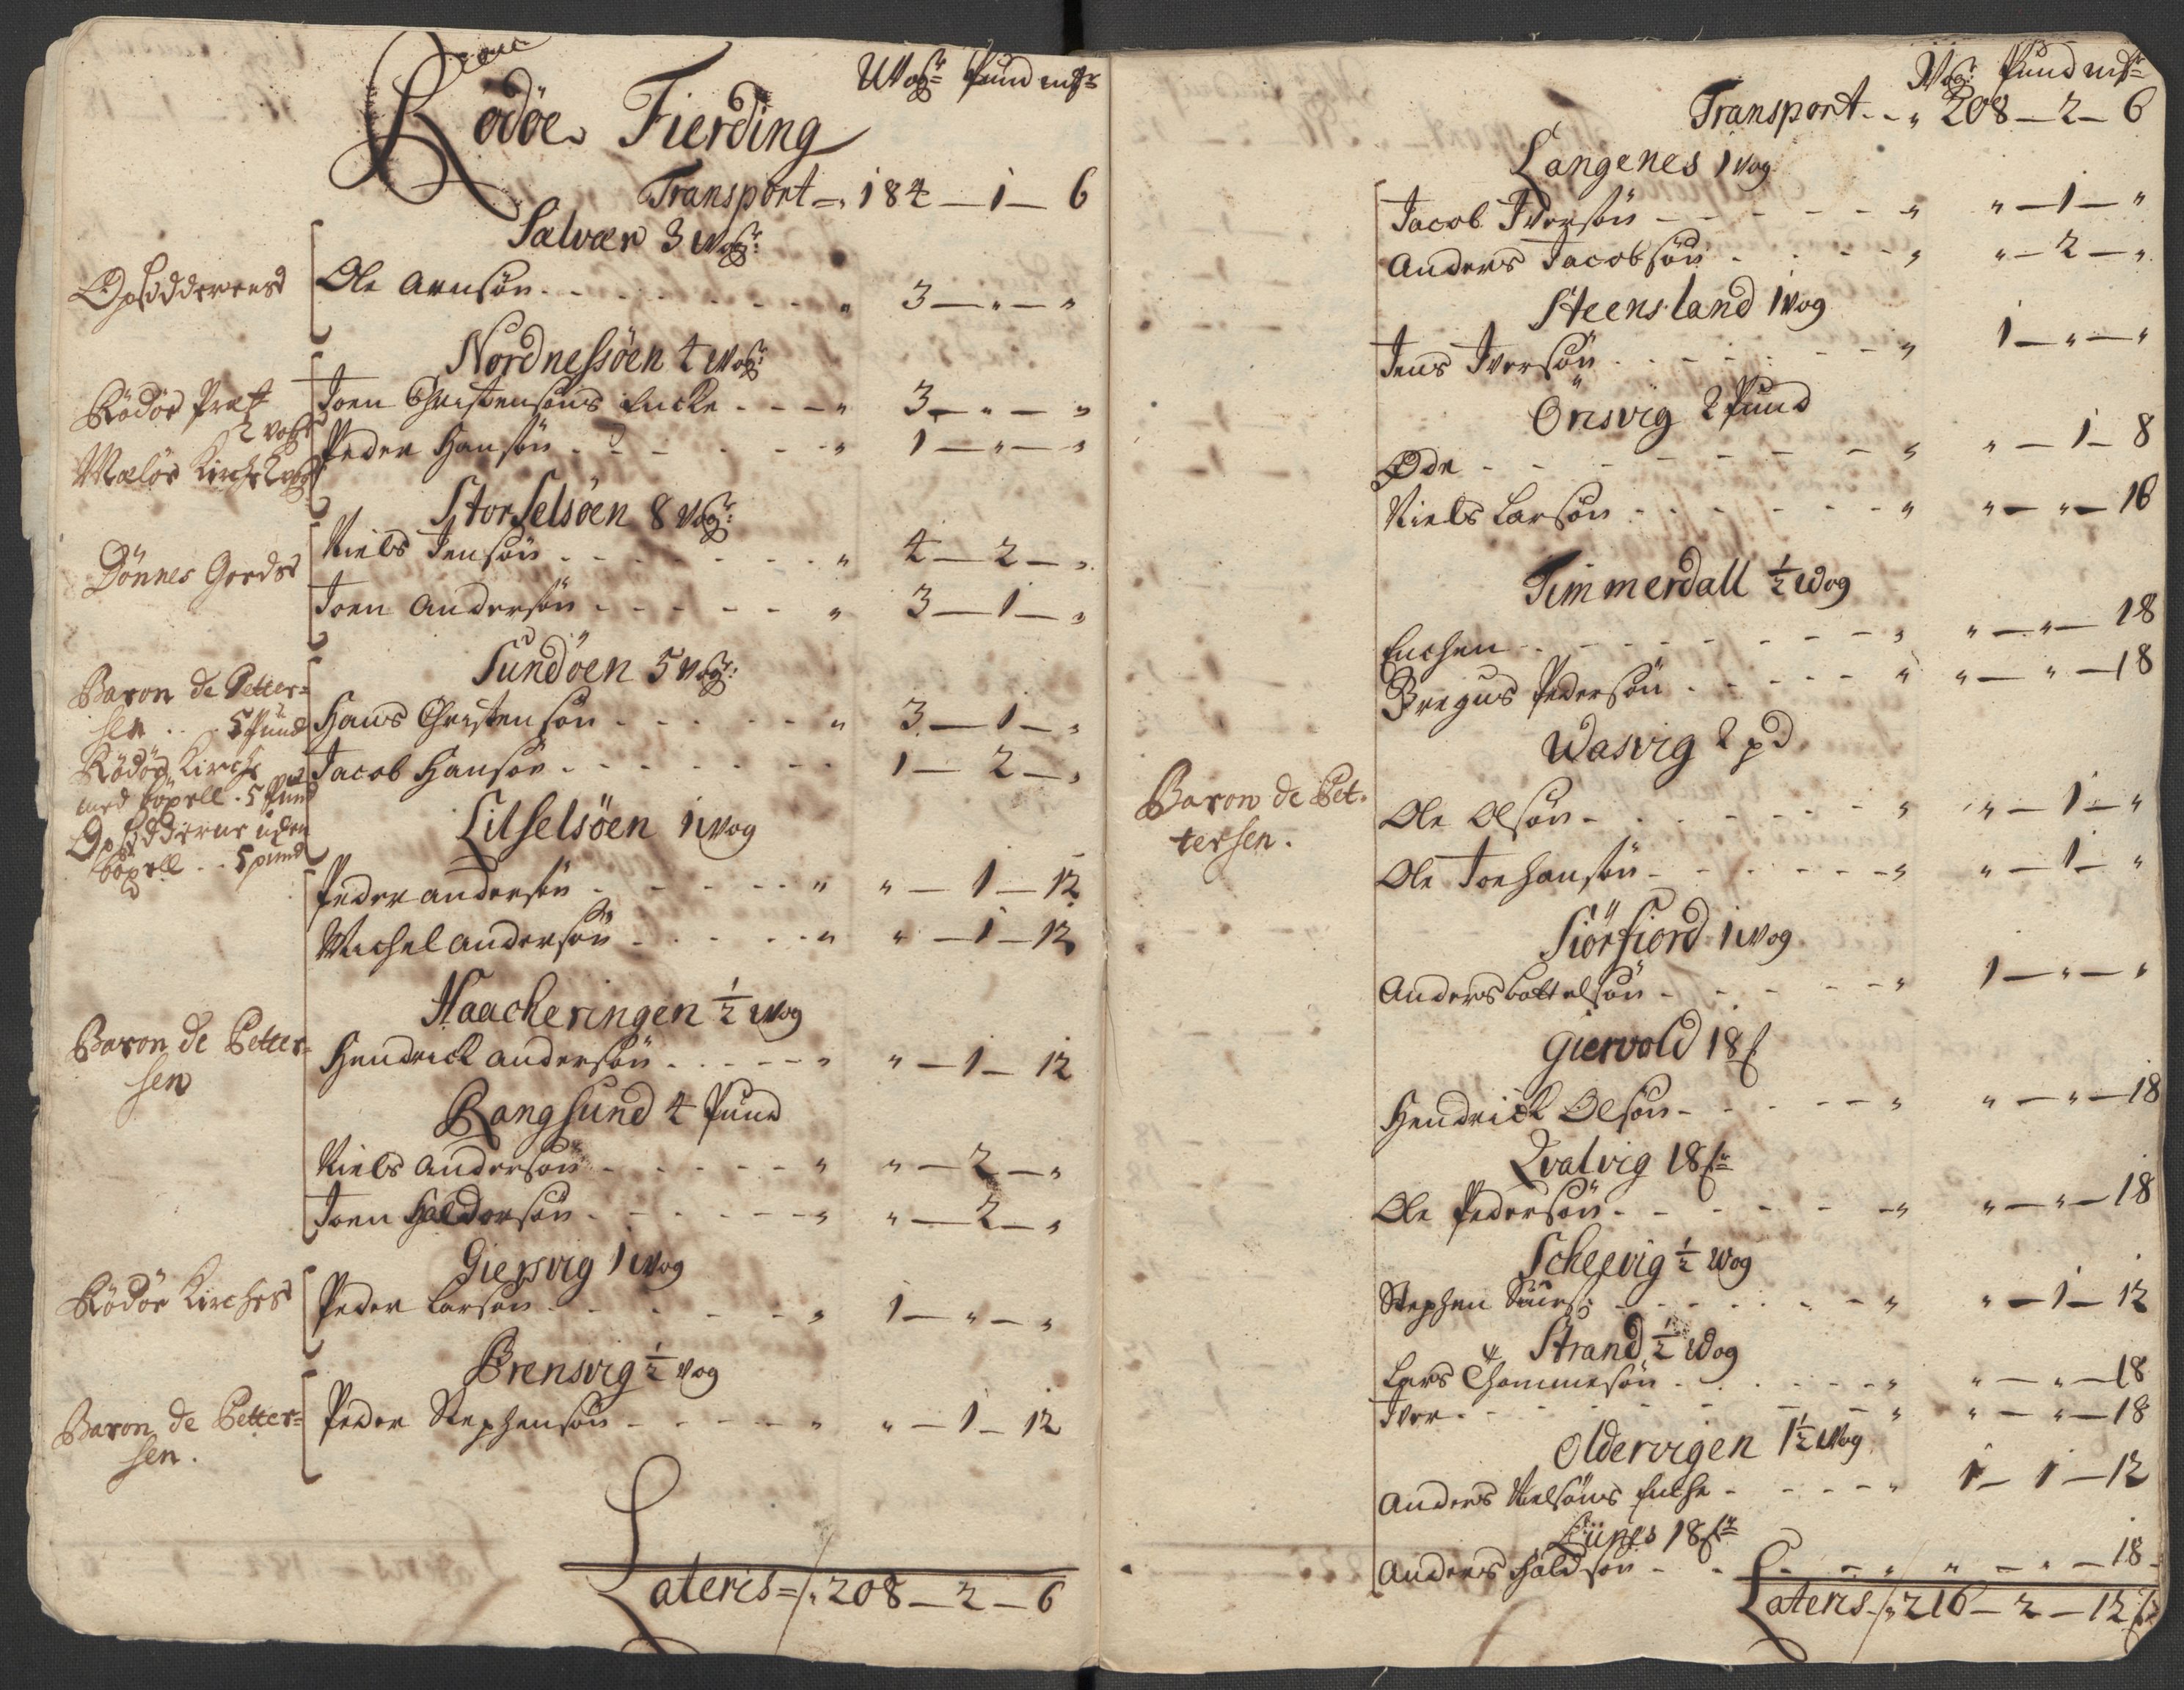 Rödöe Fierding
Wogr Pund mkr
Transport 184 — 1 — 6
Salvær 3 Wogr:
Opsidderens
Ole Arnsön - - - - " 3 — " — "
Nordnessöen 4 Wogr:
Rödöe Præst 2 Wogr
Joen Christensöns Encke - - - " 3 — " — "
Mælöe Kirche 2 Wogr
Peder Hansön - - - - " 1 — " — "
Storselsöen 8 Wogr:
Dönnes Goeds
Niels Jensön - - - - " 4 — 2 — "
Joen Andersön - - - - " 3 — 1 — "
Sundöen 5 Wogr:
Baron de Petter=
sen . . 5 Pund
Hans Christensön - - - - " 3 — 1 — "
Rödöe Kirche
med böxell . 5 Pund
Jacob Hansön - - - - 1 — 2 — "
Opsidderne uden
böxell . . 5 pund
Lilselsöen 1 Wog
Peder Andersön - - - - " " — 1 — 12
Michel Andersön - - - - " " — 1 — 12
Haacheringen ½ Wog
Baron de Petter=
sen
Hendrick Andersön - - - - " " — 1 — 12
Rangsund 4 Pund
Niels Andersön - - - - " " — 2 — "
Joen Haldorsön - - - - " " — 2 — "
Giersvig 1 Wog
Rödöe Kirches
Peder Larsön - - - - " 1 — " — "
Brensvig ½ Wog
Baron de Petter=
sen.
Peder Stephensön - - - - " " — 1 — 12
Lateris = 208 — 2 — 6
Wogr Pund mkr
Transport - - " 208 — 2 — 6
Langenes 1 Wog
Jacob Iversön - - - - " " — 1 — "
Anders Jacobsön - - - - " " — 2 — "
Steensland 1 Wog
Jens Iversön - - - - " 1 — " — "
Önsvig 2 Pund
Öde - - - - " " — 1 — 8
Niels Larsön - - - - " " — " — 16
Timmerdall ½ Wog
Enchen - - - - " " — " — 18
Bregus Pedersön - - - - " " — " — 18
Wasvig 2 pd
Baron de Pet=
tersen.
Ole Olsön - - - - " " — 1 — "
Ole Joehansön - - - - " " — 1 — "
Siörfiord 1 Wog
Anders Bottelsön - - - - " 1 — " — "
Giervold 18
Hendrick Olsön - - - - " " — " — 18
Qvalvig 18
Ole Pedersön - - - - " " — " — 18
Scheevig ½ Wog
Stephen - - - - " " — 1 — 12
Strand ½ Wog
Lars Thommesön - - - - " " — " — 18
Iver - - - - " " — " — 18
Oldervigen 1½ Wog
Anders Nielsöns Enche - - - - " 1 — 1 — 12
18
Anders - - - - " " — " — 18
Lateris 216 — 2 — 12